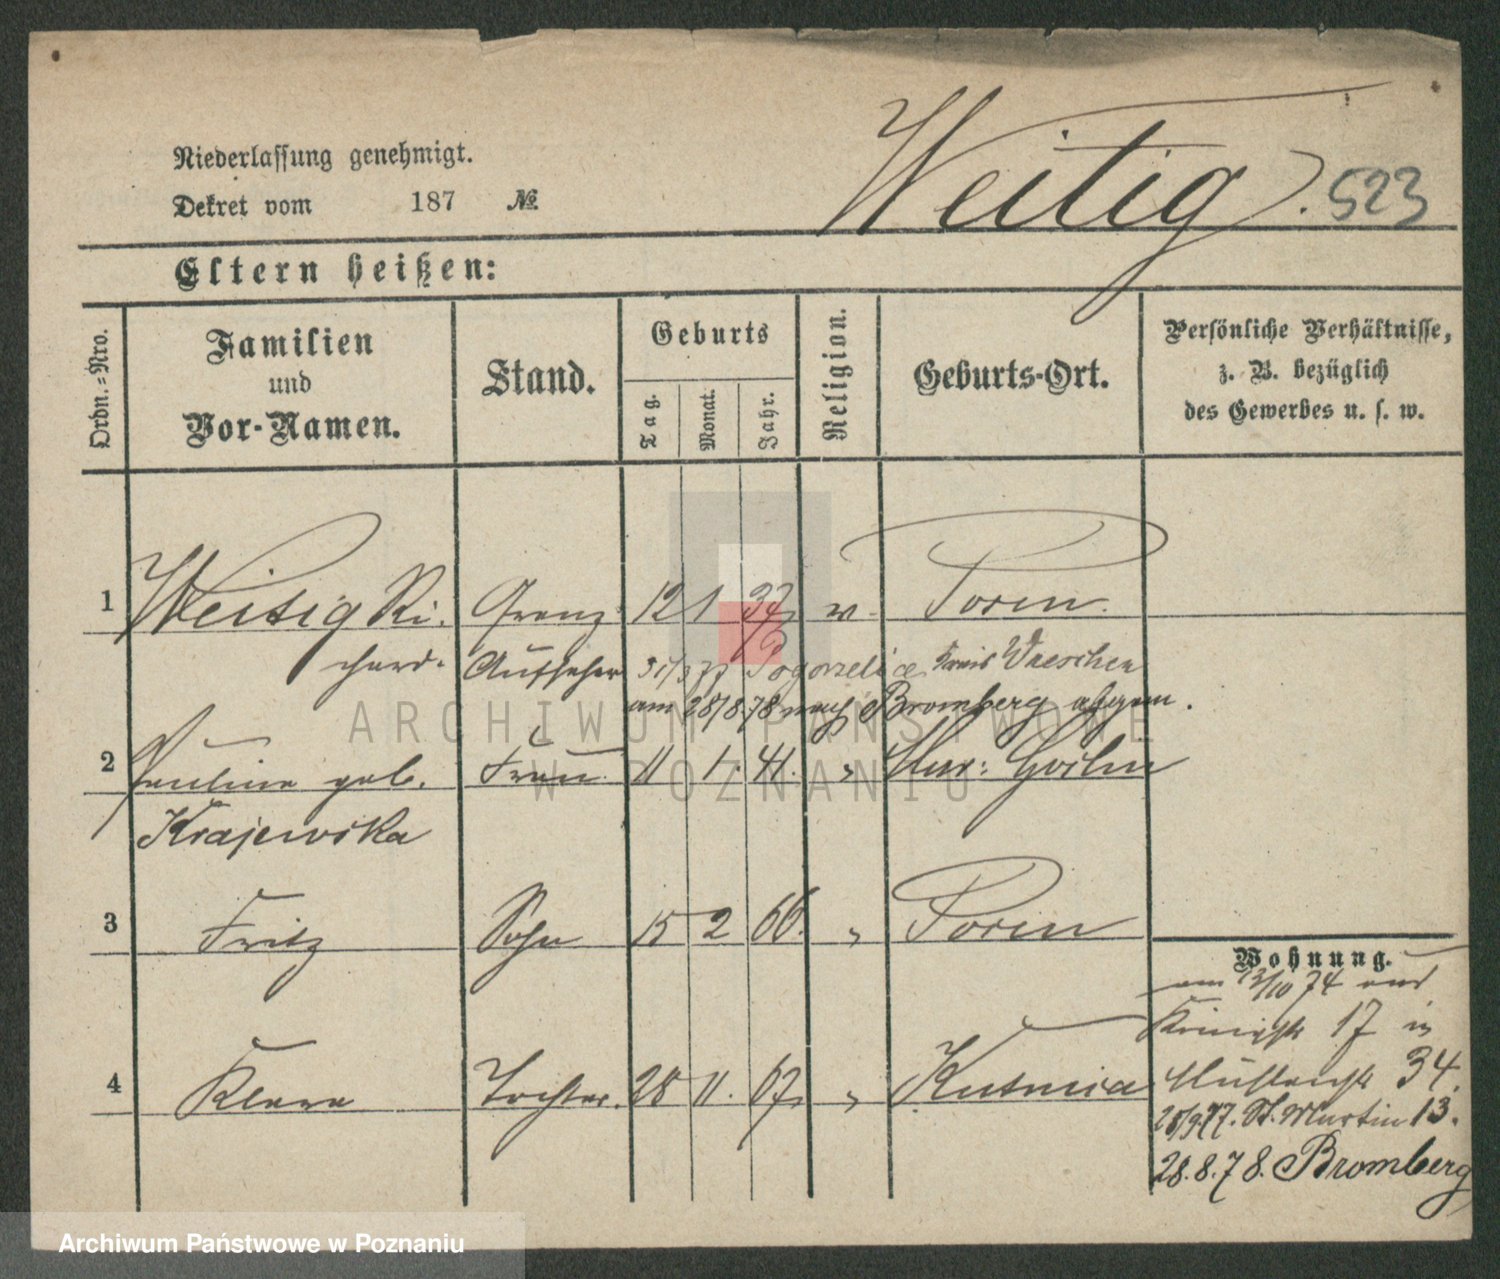 Weitig. 523
Niederlassung genehmigt.
Dekret vom 187 №
Eltern heißen:
Ordn.=Nro.
Familien
und
Vor-Namen.
Stand.
Geburts
Tag.
Monat.
Jahr.
Religion.
Geburts-Ort.
Persönliche Verhältnisse,
z. B. bezüglich
des Gewerbes u. s. w.
1 Weitig Ri- Grenz 12 1 37 Posen.
chard. Aufseher 31/3 77 Pogorzelice Kreis Wreschen
am 28/8.78 nach Bromberg abgem.
2 Pauline geb. Frau 11 1. 41. " Mur: Goslin
Krajewska
3 Fritz Sohn 15 2 66. " Posen
4 Klara Tochter. 28 11. 67 "
Wohnung.
am 13/10 74 aus
17 in
Mühlenstr 34.
28/9.77. St. Martin 13.
28.8.78. Bromberg
ARCHIWUM PAŃSTWOWE
W POZNANIU
Archiwum Państwowe w Poznaniu